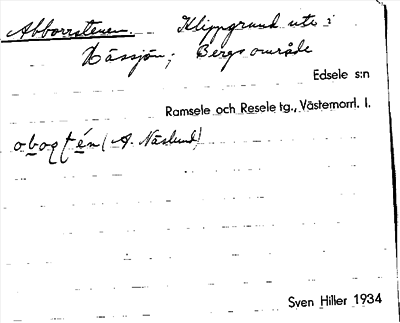 Abborrstenen. Klippgrund ute i
Hässjön; Bergs område
Edsele s:n
Ramsele och Resele tg., Västernorrl. l.
(A. Näslund)
Sven Hiller 1934